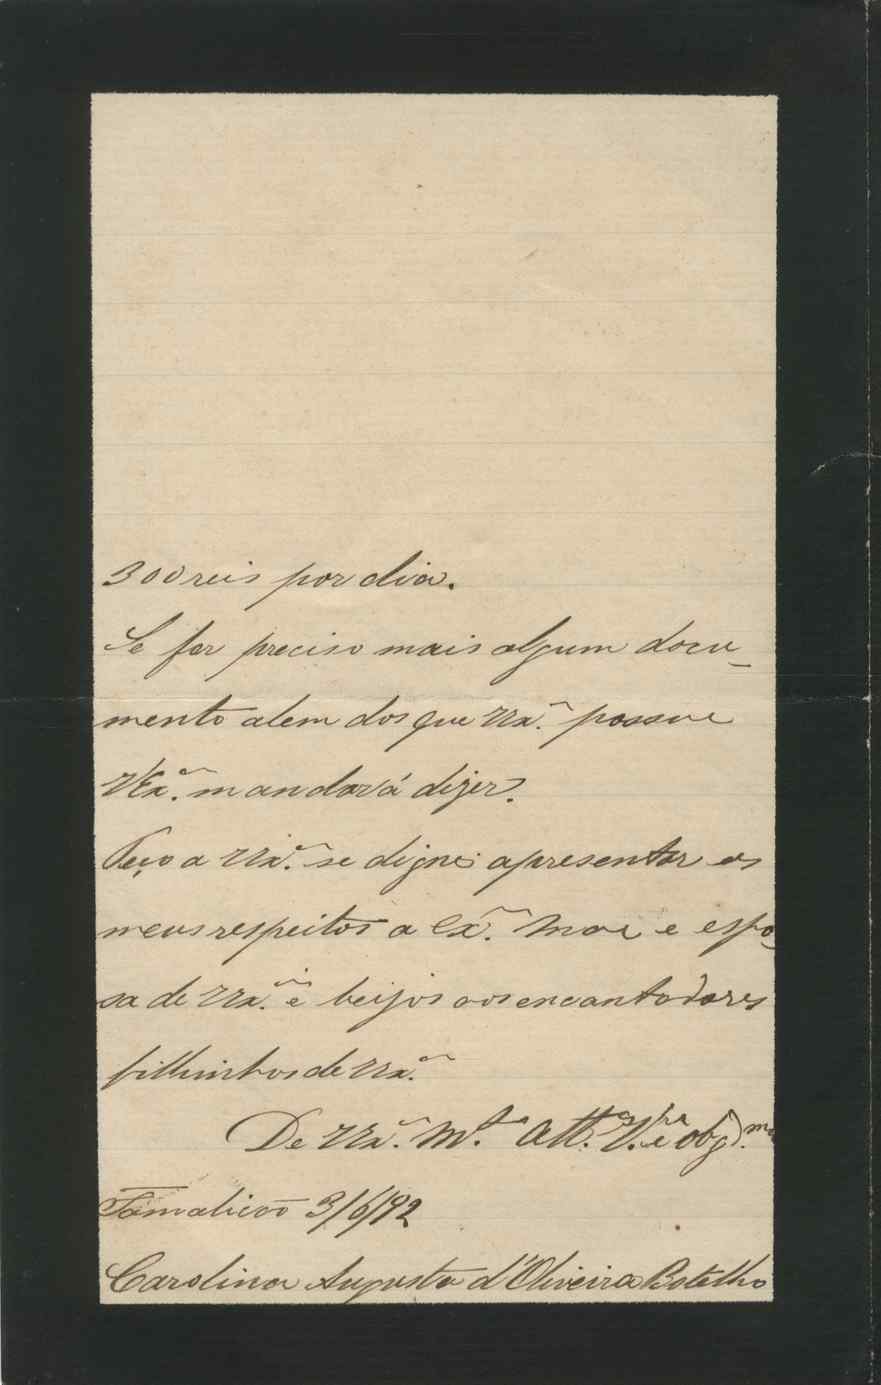 300 reis por dia.
Se for preciso mais algum docu-
mento alem dos que VExª. possue
VExª. mandará dizer.
Peço a VExª. se digne apresentar os
meus respeitos a Exª. Mãe e espo-
sa de VExª. e beijos aos encantadores
filhinhos de VExª.
De VExª. Mᵗᵒ. Attª. Vʳª e obgᵈᵐª
Famalicão 3/6/92
Carolina Augusta d'Oliveira Botelho